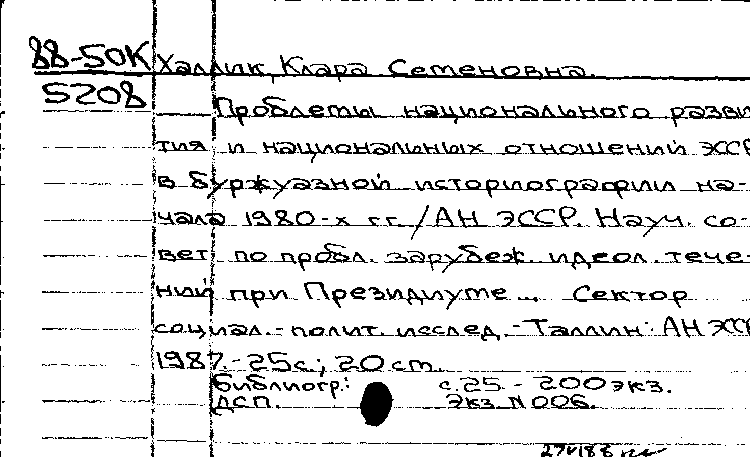 88-50К Халлик, Клара Семеновна.
5208
Проблемы национального разви
тия и национальных отношений ЭССР
в буржуазной историографии на-
чала 1980-х гг. / АН ЭССР. Науч. со-
вет по пробл. зарубеж. идеол. тече-
ний при Президиуме... Сектор
социал.-полит. исслед. - Таллин: АН ЭССР
1987. - 25 с.; 20 см.
Библиогр.: с. 25 - 200 экз.
ДСП. Экз. N 006.